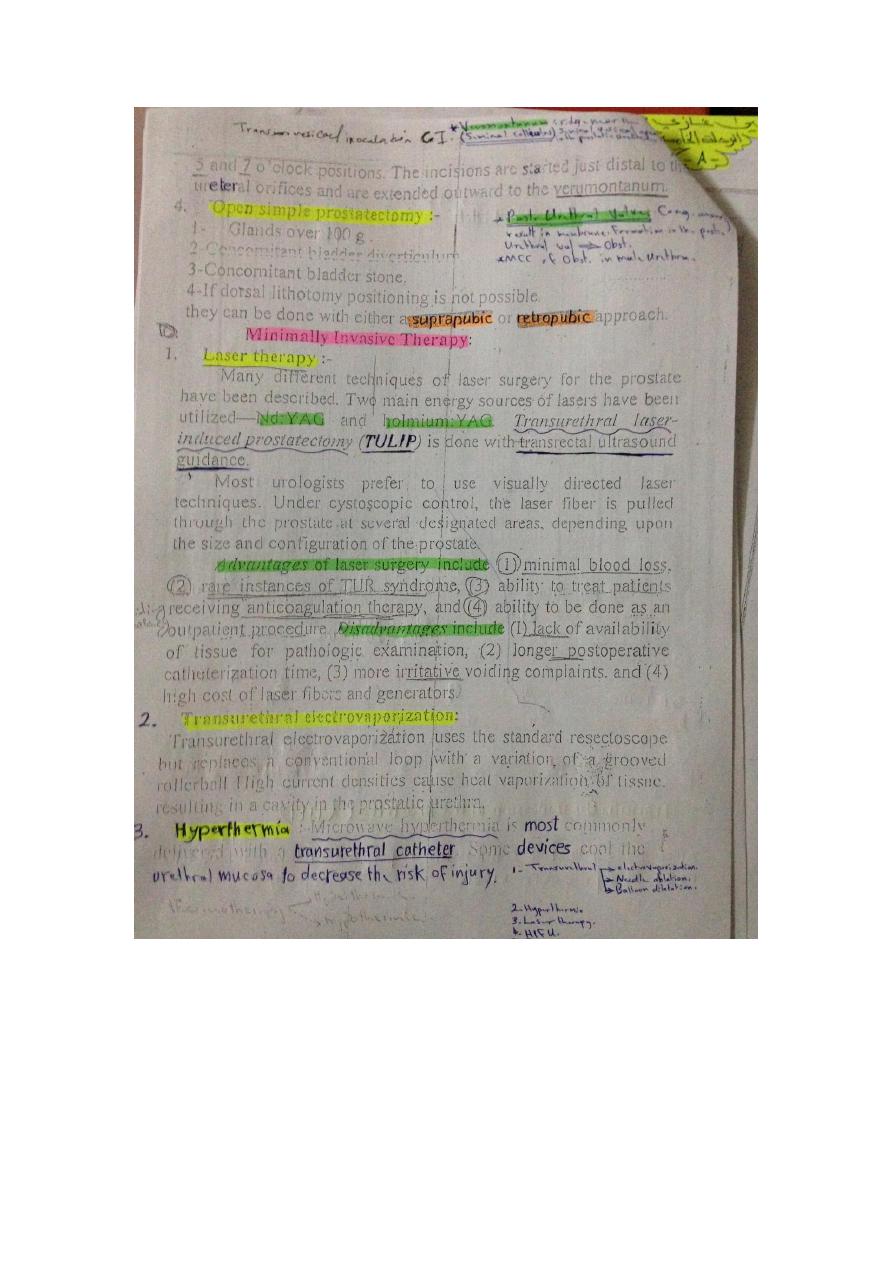 Transvesical inoculation GI. *Verumontanum: ridge near the
(Seminal colliculus)
5 and 7 o'clock positions. The incisions are started just distal to the
ureteral orifices and are extended outward to the verumontanum.
4. Open simple prostatectomy :-
Post. Urethral Valves Cong.
result in membrane formation in the post.
Urethral val → Obst.
MCC of Obst. in male Urethra.
1- Glands over 100 g.
2-Concomitant bladder diverticulum
3-Concomitant bladder stone.
4-If dorsal lithotomy positioning is not possible.
they can be done with either a suprapubic or retropubic approach.
D. Minimally Invasive Therapy:
1. Laser therapy :-
Many different techniques of laser surgery for the prostate
have been described. Two main energy sources of lasers have been
utilized—Nd:YAG and holmium:YAG. Transurethral laser-
induced prostatectomy (TULIP) is done with transrectal ultrasound
guidance.
Most urologists prefer to use visually directed laser
techniques. Under cystoscopic control, the laser fiber is pulled
through the prostate at several designated areas, depending upon
the size and configuration of the prostate.
Advantages of laser surgery include (1) minimal blood loss,
(2) rare instances of TUR syndrome, (3) ability to treat patients
receiving anticoagulation therapy, and (4) ability to be done as an
outpatient procedure. Disadvantages include (1) lack of availability
of tissue for pathologic examination, (2) longer postoperative
catheterization time, (3) more irritative voiding complaints. and (4)
high cost of laser fibers and generators.
2. Transurethral electrovaporization:
Transurethral electrovaporization uses the standard resectoscope
but replaces a conventional loop with a variation of a grooved
rollerball High current densities cause heat vaporization of tissue.
resulting in a cavity in the prostatic urethra.
3. Hyperthermia :-Microwave hyperthermia is most commonly
delivered with a transurethral catheter. Some devices cool the
urethral mucosa to decrease the risk of injury.
1- Transurethral → electrovaporization.
→ Needle ablation.
→ Balloon dilatation.
Thermotherapy Hyperthermia.
2. Hyperthermia
3. Laser therapy.
4. HIFU.